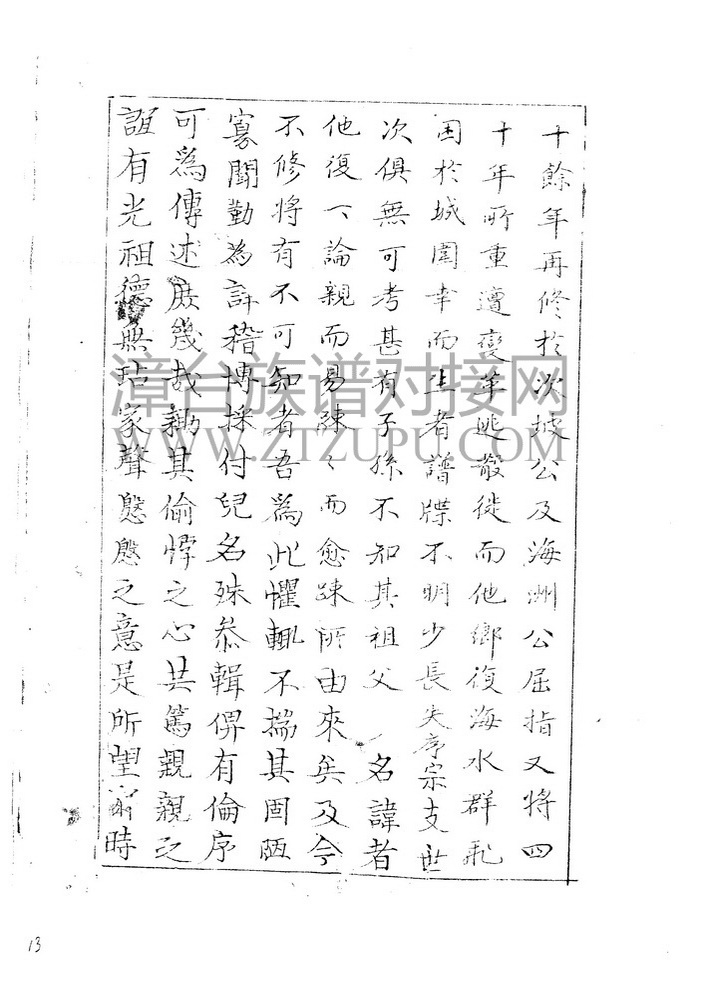 十餘年再修於次坡公及海洲公屈指又將四
十年所重遭變革逃散徙而他鄉復海水群飛
困於城圍幸而生者譜牒不明少長失序宗支世
次俱無可考甚有子孫不知其祖父名諱者
他復不論親而易疎々而愈疎所由來矣及今
不修將有不可知者吾為此懼輒不揣其固陋
寡聞勤為詳稽博採付兒名殊叅輯俾有倫序
可為傳述庶幾哉勷其倫惇之心共篤親親之
誼有光祖德無玷家聲慇慇之意是所望 時
漳台族谱对接网
WWW.ZTZUPU.COM
13